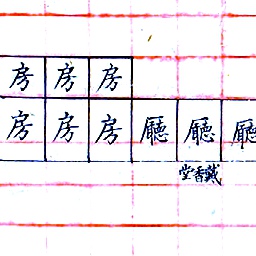 房房房
房房房廳廳廳
堂香戴